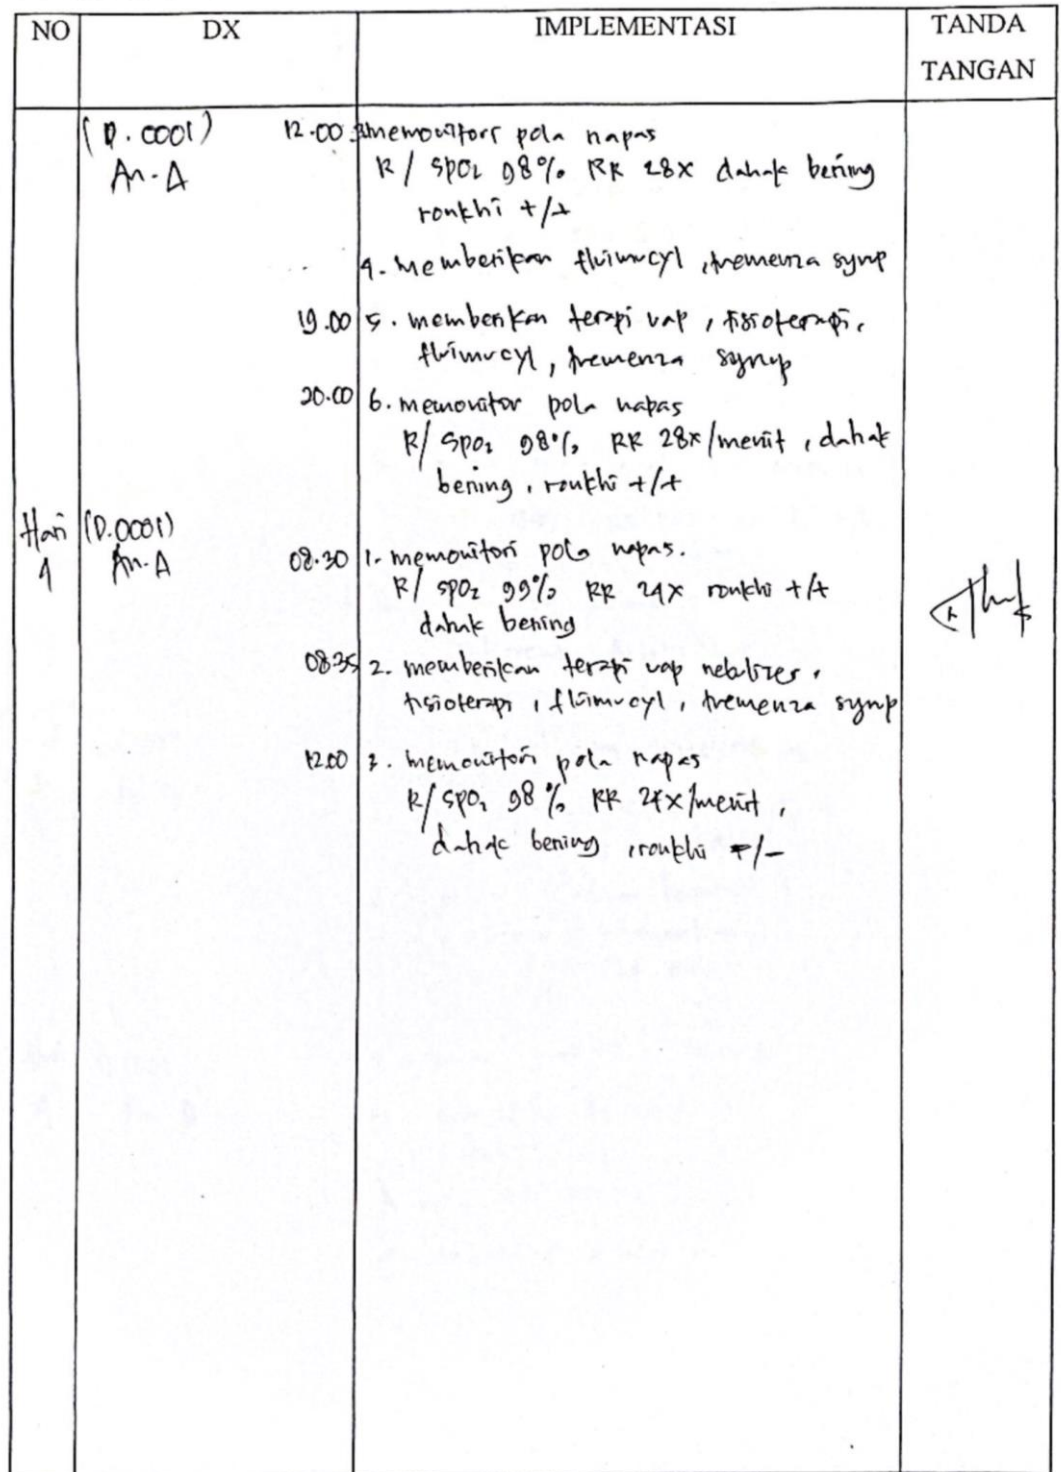 NO DX IMPLEMENTASI TANDA TANGAN
(D.0001) 12.00 3. memonitori pola napas
An. A R/ SpO2 98% RR 28x dahak bening
ronkhi +/+
4. Memberikan fluimucyl, tremenza syrup
19.00 5. memberikan terapi uap, fisioterapi,
fluimucyl, tremenza syrup
20.00 6. memonitor pola napas
R/ SpO2 98% RR 28x/menit, dahak
bening, ronkhi +/+
Hari (D.0001)
4 An. A 08.30 1. memonitori pola napas.
R/ SpO2 99% RR 24x ronkhi +/+
dahak bening
08.35 2. memberikan terapi uap nebulizer,
fisioterapi, fluimucyl, tremenza syrup
12.00 3. memonitori pola napas
R/ SpO2 98% RR 24x/menit,
dahak bening, ronkhi +/-